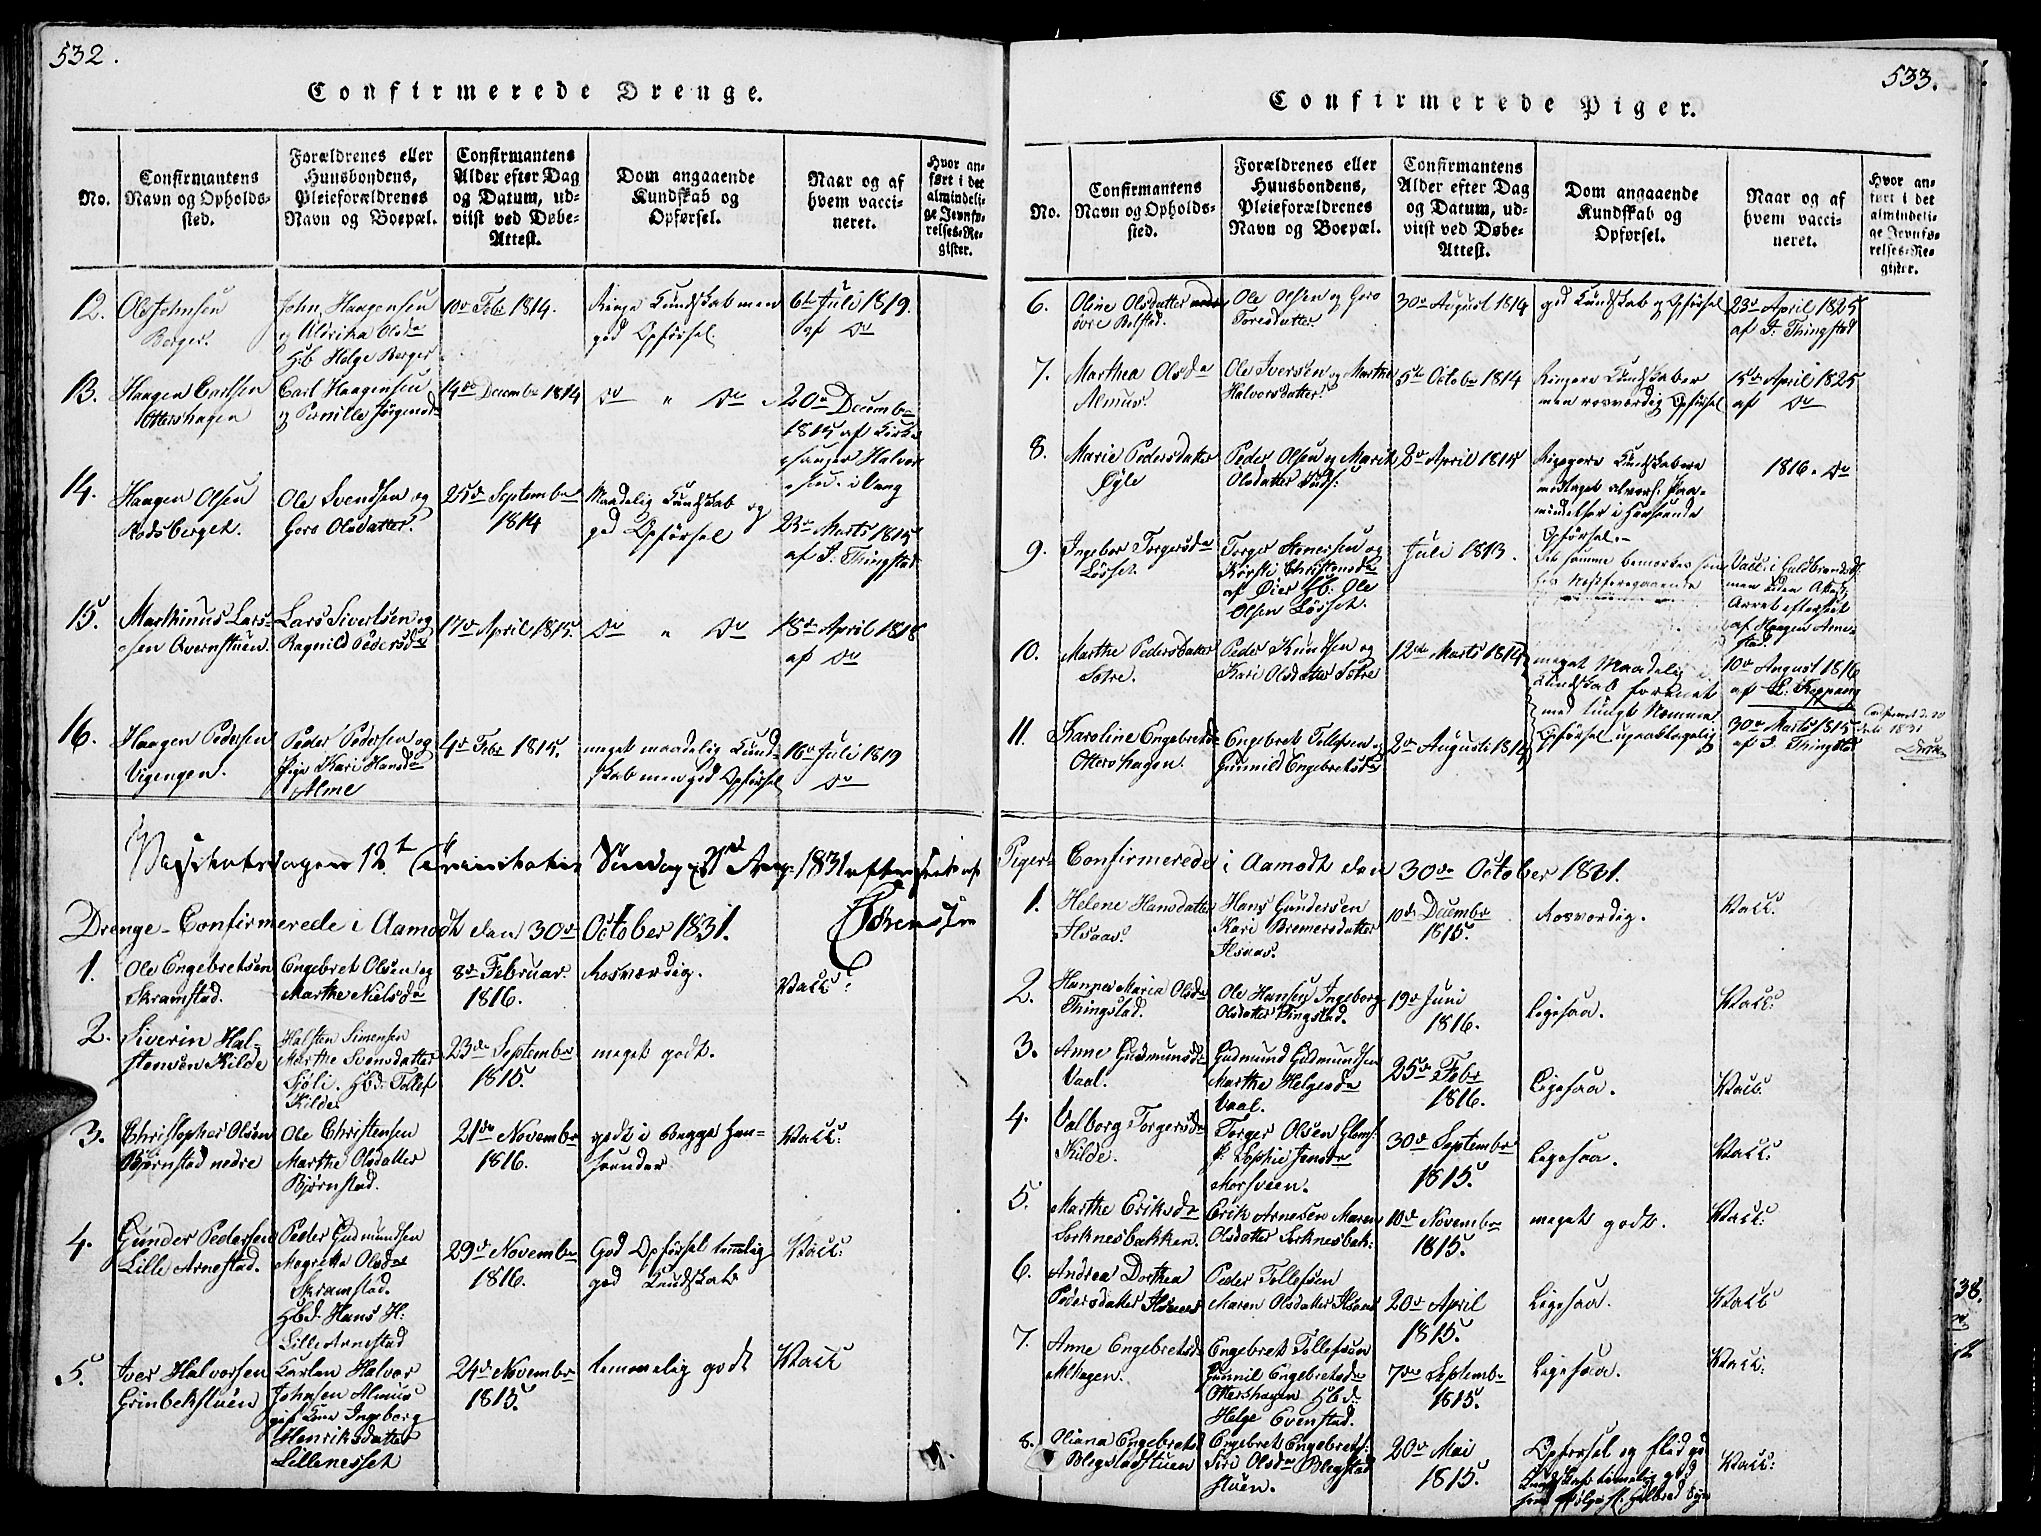 532.
Confirmerede Drenge.
No.
Confirmantens
Navn og Opholds-
sted.
Forældrenes eller
Huusbondens,
Pleieforældrenes
Navn og Boepæl.
Confirmantens
Alder efter Dag
og Datum, ud-
viist ved Døbe-
Attest.
Dom angaaende
Kundskab og
Opførsel.
Naar og af
hvem vacci-
neret.
Hvor an-
ført i det
almindeli-
ge Jevnfø-
relses-Re-
gister.
12.
Ole Johnsen
Berger.
John Haagensen
og Oldrika Olsda
Hb Helge Berger
10de Febr 1814.
Ringe Kundskab men
god Opførsel
6te Juli 1819.
af Do
13.
Haagen Carlsen
Ottershagen
Carl Haagensen
og Pernille Jørgensd
14de Decembr 1814
Do " Do
20de Decembr
1815 af Kirke
sanger Halvor
14.
Haagen Olsen
Rodsberget.
Ole Svendsen og
Goro Olsdatter.
25de Septembr
1814
Maadelig Kundskab og
gd Opførsel
23de Marts 1815
af I. Thingstad
15.
Marthinus Lars-
sen Avernstuen.
Lars Sivertsen og
Ragnild Pedersda
17de April 1815.
Do " Do
18de April 1818
af Do
16.
Haagen Pedersen
Vigengen.
Peder Pedersen og
Pige Kari Hansda
Alme
4de Febr 1815.
meget maadelig Kund-
skab men god Opførsel
16de Juli 1819
Do
12te Trinitatis Søndag 21de Aug. 1831
Drenge-Confirmerede i Aamodt den 30de October 1831.
1.
Ole Engebretsen
Skramstad.
Engebret Olsen og
Marthe Nielsda
8de Februar
1816.
Rosværdig.
Vacc:
2.
Siverin Hal-
stensen Kilde
Halsten Simensen
Marthe Svensdatter
Sjøli. Hbd: Tollef
Kilde
23de Septembr
1815.
meget godt.
3.
Christopher Olsen
Bjørnstad nedre
Ole Christensen
Marthe Olsdatter
Bjørnstad.
21de Novembr
1816.
godt i Begge Hen-
seender
Vacc:
4.
Gunder Pedersen
Lille Arnestad.
Peder Gudmundsen
Magretha Olsda
Skramstad.
Hbd. Hans H:
Lille Arnestad
29de Novembr
1816.
God Opførsel temmelig
god Kundskab
Vacc:
5.
Iver Halvorsen
Grinbekstuen
Karlen Halvor
Johnsen Almus
gift Kone Ingeborg
Henriksdatter
Lillenesset
24de Novembr
1815.
temmelig godt
Vacc
533.
Confirmerede Piger.
No.
Confirmantens
Navn og Opholds-
sted.
Forældrenes eller
Huusbondens,
Pleieforældrenes
Navn og Boepæl.
Confirmantens
Alder efter Dag
og Datum, ud-
viist ved Døbe-
Attest.
Dom angaaende
Kundskab og
Opførsel.
Naar og af
hvem vacci-
neret.
Hvor an-
ført i det
almindeli-
ge Jevnfø-
relses-Re-
gister.
6.
Oline Olsdatter
øvre Bolstad.
Ole Olsen og Goro
Toresdatter.
30te August 1814
god Kundskab og Opførsel
23de April 1825
af I. Thingstad
7.
Marthea Olsda
Almus.
Ole Iversen og Marthe
Halvorsdatter.
5te Octobr 1814
Ringere Kundskaber
men rosværdig Opførsel
15de April 1825
af Do
8.
Marie Pedersdatter
Øgle.
Peder Olsen og Marit
Olsdatter
8de April 1815
Ringere Kundskaber
modtaget alvorl: Paa-
mindelser i Henseende
Opførsel.
1816. Do
9.
Ingebor Torgersda
Løsset.
Torger Stenersen og
Kirsti Christensda
af Øier Hb: Ole
Olsen Løsset.
Juli 1813.
Det samme bemærkes som
Vacc: i Guldbrandsd
men uden Attest
Arret efterseet
af Haagen Arne-
stad.
10.
Marthe Pedersdatter
Sætre.
Peder Knudsen og
Kari Olsdatter Sætre
12te Marts 1814
meget Maadelig
Kundskab forenet
med tungt Nemme.
Opførsel upaaklagelig
10de August 1816
af L. Koppang
11.
Karoline Engebretsda
Ottershagen.
Engebret Tollefsen og
Gunnild Engebretsda
2de August 1814
30te Marts 1815
af I. Thingstad
Piger Confirmerede i Aamodt den 30te October 1831.
1.
Helene Hansdatter
Ilsaas.
Hans Gundersen
Kari Bremersdatter
Ilsaas.
10de Decembr
1815.
Rosværdig.
Vacc:
2.
Hannea Maria Olsda
Thingstad.
Ole Hansen Ingeborg
Olsdatter Tingstad.
19de Juni
1816.
Ligesaa.
Vacc:
3.
Anne Gudmunsda
Vaal.
Gudmund Gudmundsen
Marthe Helgesda
Vaal.
25de Febr
1816.
Ligesaa.
Vacc:
4.
Valborg Torgersda
Kilde.
Torger Olsen Gloms.
p. Sophie Jensda
Morsveen.
30de Septembr
1815.
Ligesaa.
Vacc:
5.
Marthe Eriksda
Sorknesbakken.
Erik Arnesen Maren
Olsdatter Sorknesbak:
10de Novembr
1815.
meget godt.
Vacc:
6.
Andrea Dorthea
Pedersdatter Ilsaas
Peder Tollefsen
Maren Olsdatter Ilsaas
20de April
1815.
Ligesaa.
Vacc
7.
Anne Engebretsda
MHagen.
Engebret Tollefsen
Gunnil Engebretsda
Ottershagen Hbd:
Helge Evenstad.
7de Septembr
1815.
Ligesaa.
Vacc:
8.
Oliana Engebretsd
Blegstadstuen
Engebret Engebrets:
Siri Olsda Blegstad
stuen.
20de Mai
1815.
Opførsel og flid god
Kundskab temmelig god
Vacc:
38.